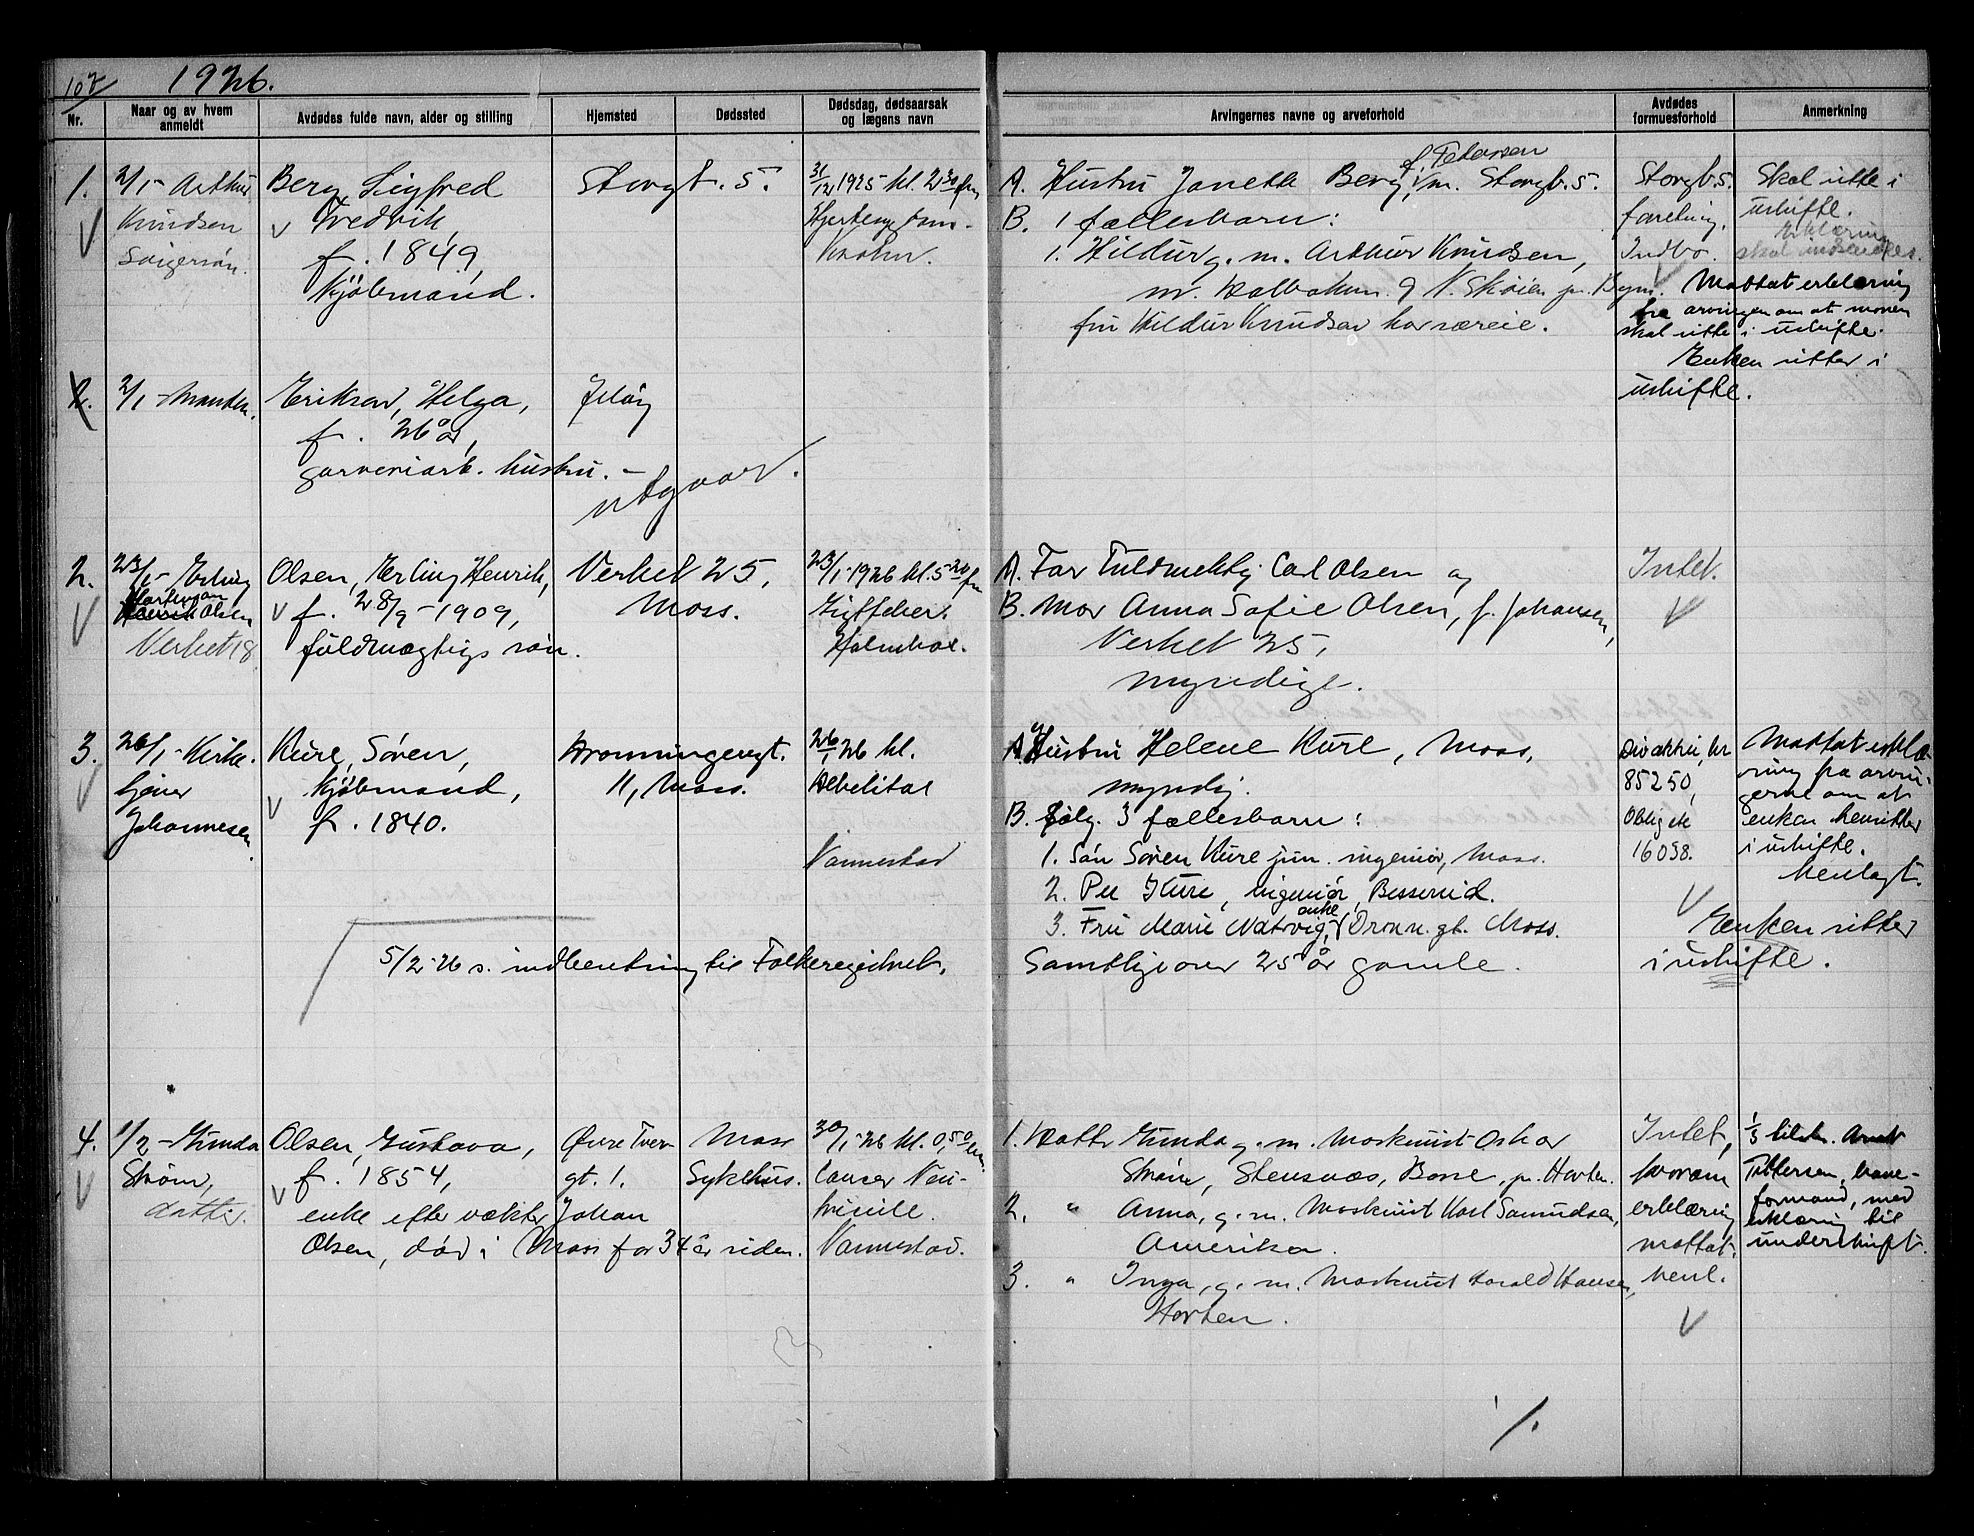 107
1926.
Nr.
Naar og av hvem anmeldt
Avdødes fulde navn, alder og stilling
Hjemsted
Dødssted
Dødsdag, dødsaarsak og lægens navn
Arvingernes navne og arveforhold
Avdødes formuesforhold
Anmerkning
1.
2/1 - Arthur
Knudsen
Svigersøn.
Berg, Sigfred
Fredvik,
f. 1849,
Kjøbmand.
Storgt. 5.
31/12 1925 kl. 2 30 fm
Krohn.
A. Hustru Janette Berg, f. Pedersen, m. Storgt. 5.
B. 1 fællesbarn:
1. Hildur g. m. Arthur Knudsen,
N. Skøien pr. Bygn.
fru Hildur Knudsen har særeie.
Storgt. 5.
forretning.
Indbo.
Skal sitte i
uskifte.
Erklæring
skal indsendes.
Mottat erklæring
fra arvingen om at moren
skal sitte i uskifte.
Enken sitter i
uskifte.
2.
2/1 - Manden.
Eriksen, Helga,
f. 26 år,
garveriarb. hustru. -
Jeløy
utgaar.
2.
23/1 - Erling
Martinsen
Henrik Olsen
Verket 18.
Olsen, Erling Henrik,
f. 28/9 - 1909,
fuldmægtigs søn.
Verket 25,
Moss.
23/1 - 1926 kl. 5 20 fm
Holmboe.
A. Far Fuldmektig Carl Olsen og
B. Mor Anna Sofie Olsen, f. Johansen,
Verket 25,
myndige.
Intet.
3.
26/1 - Kirke-
tjener
Johannesen
Kure, Søren,
Kjøbmand,
f. 1840.
Dronningensgt.
11, Moss.
26/1 26 kl.
Debilitas
Vannestad
A. Hustru Helene Kure, Moss,
myndig.
B. følg. 3 fællesbarn:
1. Søn Søren Kure jun. ingeniør, Moss.
2. Per Kure, ingeniør, Besserud.
3. Fru Marie Natvig, enke, Dronn. gt. Moss.
Samtlige over 25 år gamle.
Div aktier, kr
85250,
Oblig. kr
16058.
Mottat erklæ-
ring fra arvin-
gerne om at
enken hensitter
i uskifte.
Henlagt.
Enken sitter
i uskifte.
5/2 - 26 s. indberetning til Folkeregistret.
4.
1/2 - Gunda
Strøm,
datter.
Olsen, Gustava,
f. 1854,
enke efter vækter Johan
Olsen, død i Moss for 34 år siden.
Øvre Tver-
gt. 1.
Moss
Sykehus.
30/1 - 26 kl. 0,50 em.
Cancer Ven-
triculi.
Vannestad.
1. Datter Gunda g. m. Maskinist Oskar
Strøm, Stensnæs, Borre, pr. Horten.
2. " Anna, g. m. Maskinist Karl Samuelsen,
Amerika.
3. " Inga, g. m. Maskinist Harald Hansen,
Horten.
Intet,
hvorom
erklæring
mottat.
Henl.
1/3 tilskr. Arnt
Pettersen, bane-
formand, med
erklæring til
underskrift.